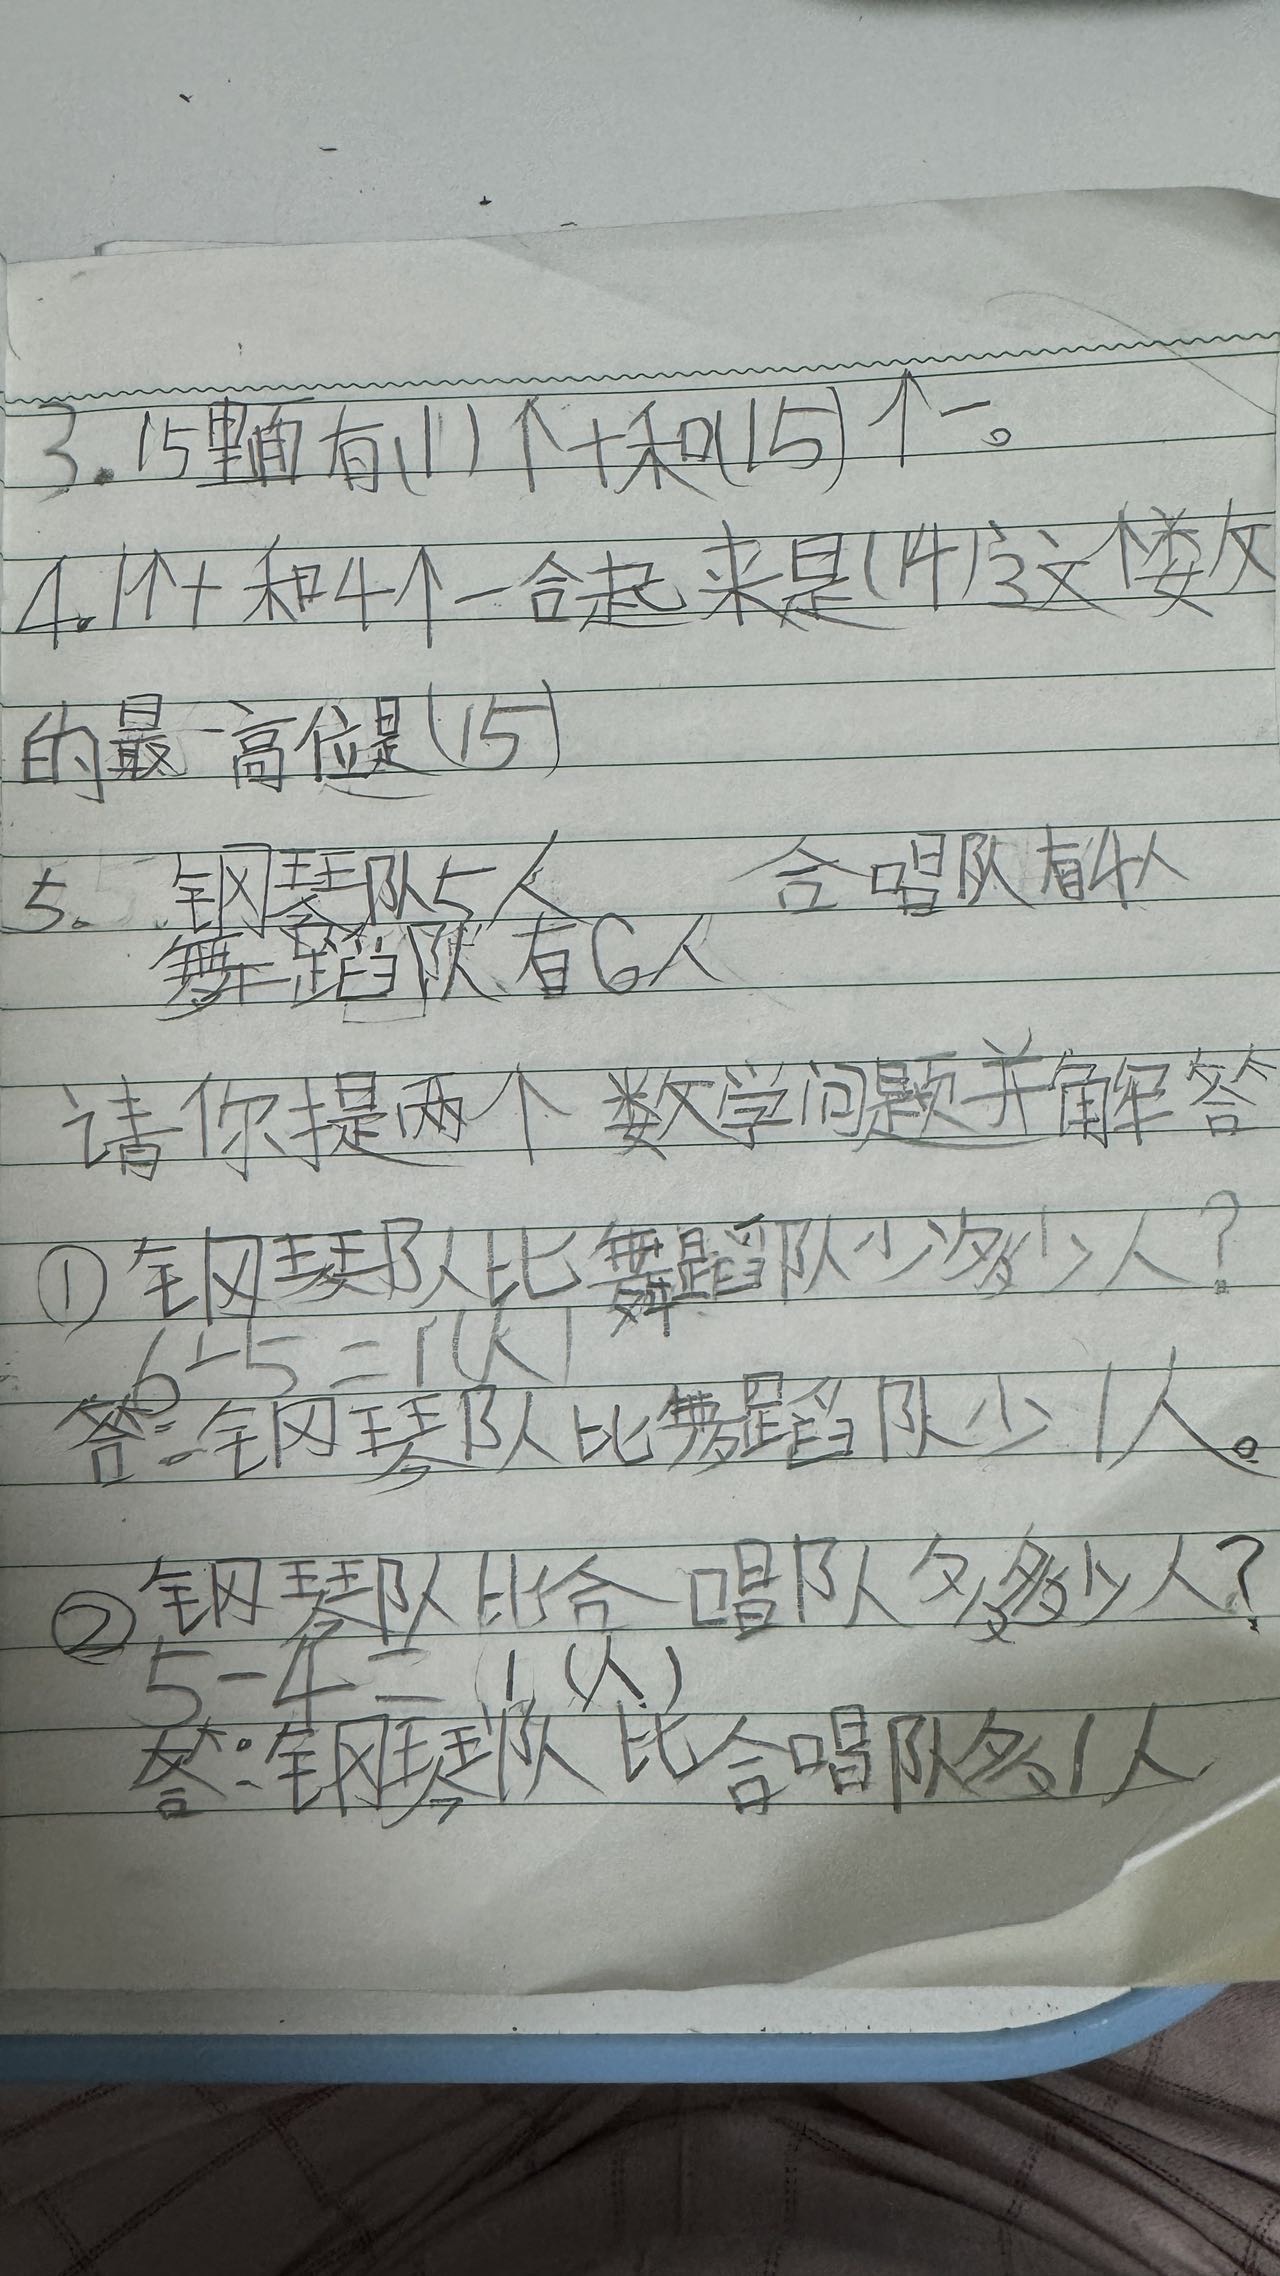 3. 15里面有(1)个十和(15)个一。
4. 1个十和4个一合起来是(14)这个数
的最高位是(15)
5. 钢琴队5人 合唱队有4人
舞蹈队有6人
请你提两个数学问题并解答
① 钢琴队比舞蹈队少多少人?
6-5=1(人)
答:钢琴队比舞蹈队少1人。
② 钢琴队比合唱队多多少人?
5-4=1(人)
答:钢琴队比合唱队多1人